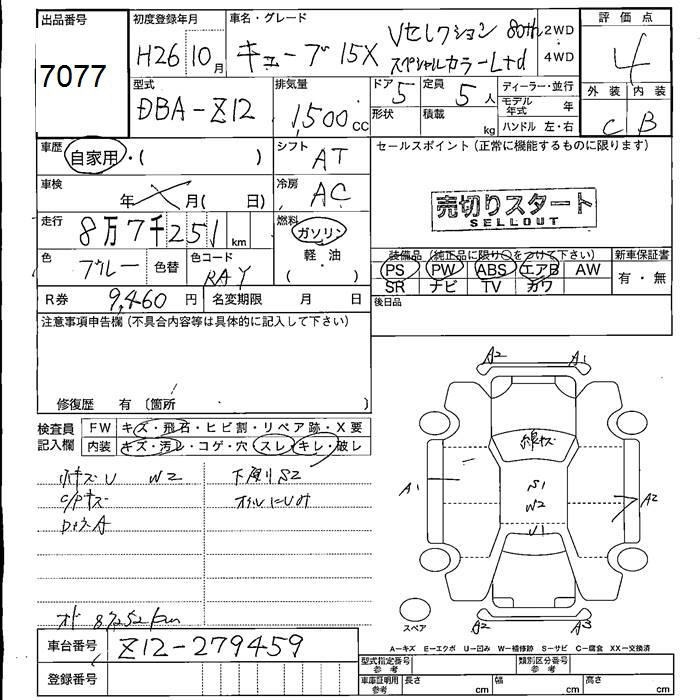 出品番号
7077
初度登録年月
H26 10月
車名・グレード
キューブ 15X Vセレクション 80th
スペシャルカラーLtd
2WD
4WD
評価点
4
外装 内装
C B
型式
DBA-Z12
排気量
1,500cc
ドア 5
形状
定員 5人
積載 kg
ディーラー・並行
モデル年式 年
ハンドル 左・右
車歴
自家用・( )
シフト AT
セールスポイント(正常に機能するものに限ります)
車検
年 月( 日)
冷房 AC
売切りスタート
SELLOUT
走行
8万7千251km
燃料
ガソリン
軽・油
( )
色
ブルー
色替
色コード
RAY
装備品(純正品に限り○をつけて下さい)
PS PW ABS エアB AW
SR ナビ TV カワ
新車保証書
有・無
R券 9,460円
名変期限 月 日
後日品
注意事項申告欄(不具合内容等は具体的に記入して下さい)
修復歴 有〔箇所 〕
検査員記入欄
FW キズ・飛石・ヒビ割・リペア跡・X要
内装 キズ・汚レ・コゲ・穴・スレ・キレ・破レ
W2
下廻りS2
A2 A1
線キズ
A1
S1
W2
U1
A2
A2 A3
スペア
オド 87252km
A-キズ E-エクボ U-凹み W-補修跡 S-サビ C-腐食 XX-交換済
車台番号 Z12-279459
登録番号
型式指定番号 参考
類別区分番号 参考
車庫証明用 参考
長さ cm 幅 cm 高さ cm